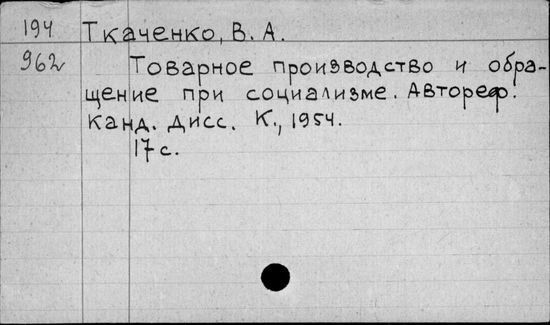 194 Ткаченко, В. А.
962 Товарное производство и обра-
щение при социализме. Автореф.
канд. дисс. К., 1954.
17 с.